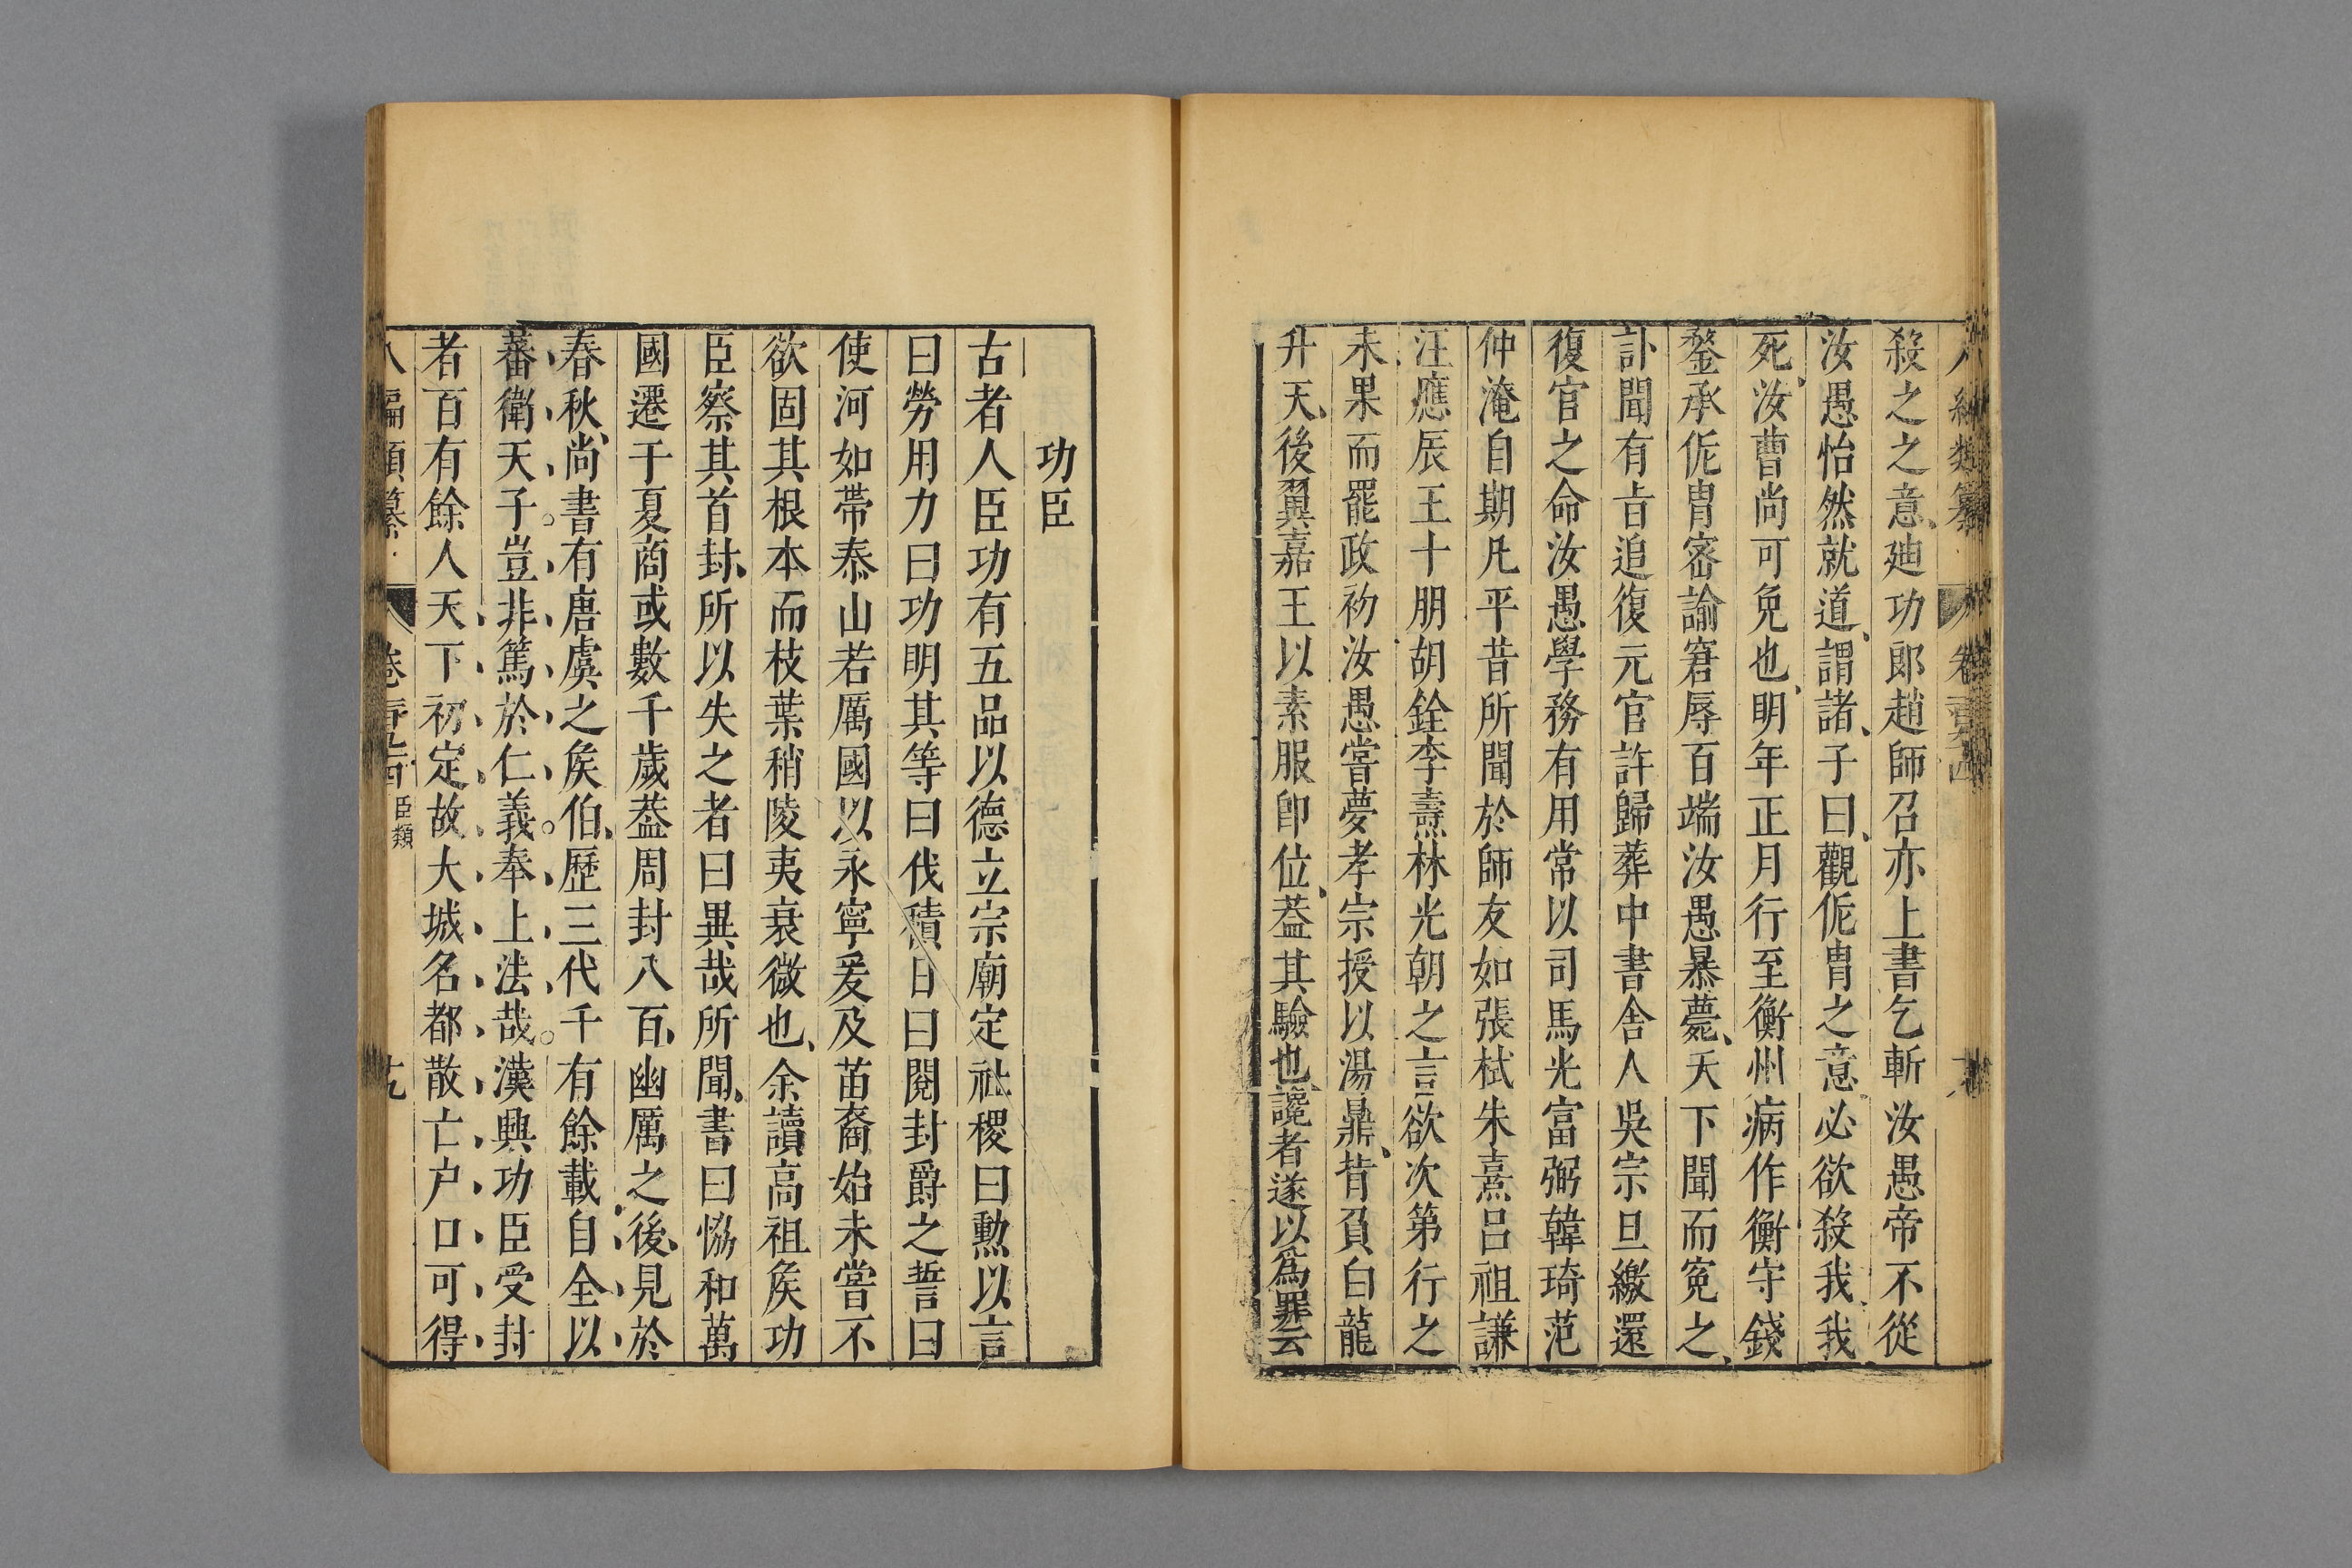 殺之之意廸功郎趙師召亦上書乞斬汝愚帝不從
汝愚怡然就道謂諸子曰觀侂胄之意必欲殺我我
死汝曹尚可免也明年正月行至衡州病作衡守錢
鍪承侂胄密諭窘辱百端汝愚暴薨天下聞而寃之
訃聞有㫖追復元官許歸葬中書舍人吳宗旦繳還
復官之命汝愚學務有用常以司馬光富弼韓琦范
仲淹自期凡平昔所聞於師友如張栻朱熹呂祖謙
汪應辰王十朋胡銓李燾林光朝之言欲次第行之
未果而罷政初汝愚嘗夢孝宗授以湯鼎背負白龍
升天後翼嘉王以素服卽位葢其驗也讒者遂以爲罪云
功臣
古者人臣功有五品以德立宗廟定社稷曰勲以言
曰勞用力曰功明其等曰伐積日曰閱封爵之誓曰
使河如帶泰山若厲國以永寧爰及苗裔始未嘗不
欲固其根本而枝葉稍陵夷衰微也余讀高祖矦功
臣察其首封所以失之者曰異哉所聞書曰恊和萬
國遷于夏商或數千歲葢周封八百幽厲之後見於
春秋尚書有唐虞之矦伯歷三代千有餘載自全以
蕃衛天子豈非篤於仁義奉上法哉漢興功臣受封
者百有餘人天下初定故大城名都散亡户口可得
八編類纂 卷 臣類 十九